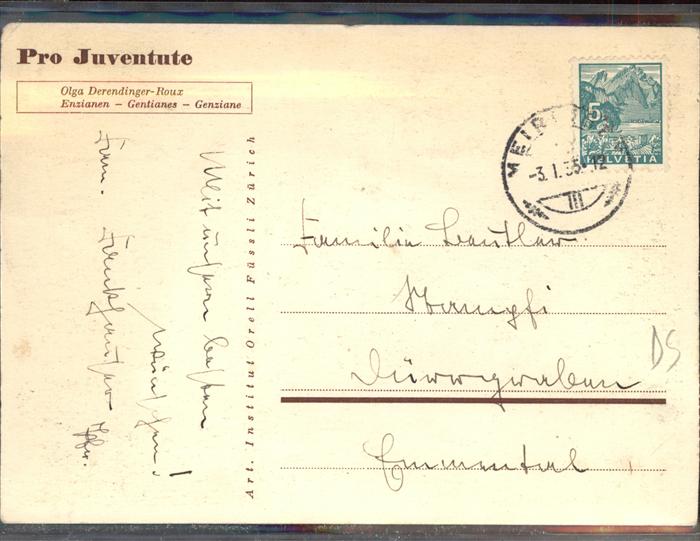 Pro Juventute
Olga Derendinger-Roux
Enzianen – Gentianes – Genziane
5
HELVETIA
MEIRI
-3. I. 35-12
III
Mit unsern besten
Wünschen!
Fam. Fankhauser
Art. Institut Orell Füssli Zürich
Familie Beutler
Stampfi
Dürrgraben
Emmental
DS